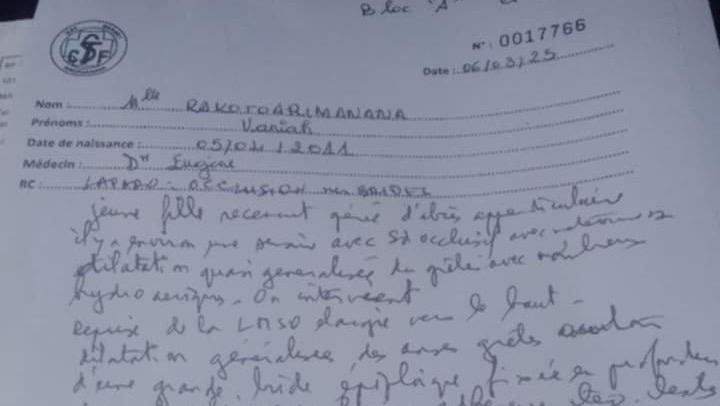 Bloc "A"
N°: 0017766
Date: 06/03/25
Nom: Mlle RAKOTOARIMANANA
Prénoms: Vaniah
Date de naissance: 05/04/2011
Médecin: Dr Eugène
RC: LAPARO - OCCLUSION sur BRIDES
jeune fille récemment d'abcès appendiculaire
il y a environ une avec Sd occlusif avec
dilatation quasi généralisée du grêle avec nombreux
hydro aériques. On intervient
reprise de la LMSO élargie vers le haut -
dilatation généralisée des anses grêles
d'une grande bride épiploïque fixée en profondeur